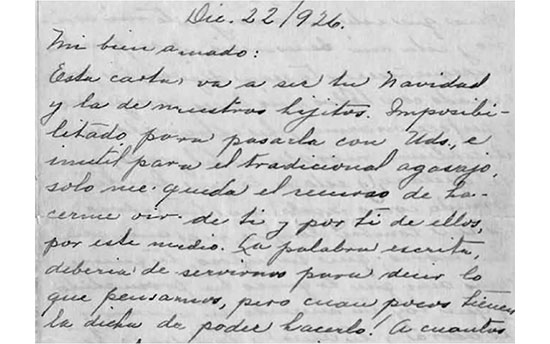 Dic. 22/926.
Mi bien amado:
Esta carta va a ser tu Navidad
y la de nuestros hijitos. Imposibi-
litado para pasarla con Uds., e
inutil para el tradicional agasajo,
solo me queda el recurso de ha-
cerme oir de ti y por ti de ellos,
por este medio. La palabra escrita,
deberia de servirnos para decir lo
que pensamos, pero cuan pocos tienen
la dicha de poder hacerlo! A cuantos